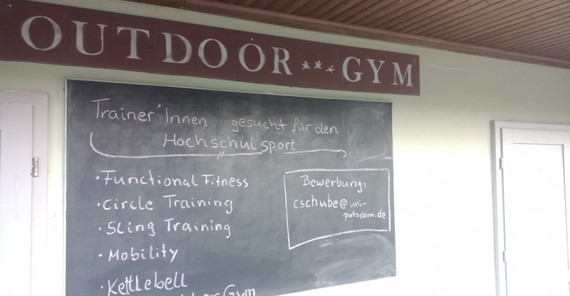 OUTDOOR *** GYM
Trainer*Innen gesucht für den
Hochschulsport
• Functional Fitness
• Circle Training
• Sling Training
• Mobility
• Kettlebell
Gym
Bewerbung:
cschube@uni-
potsdam.de